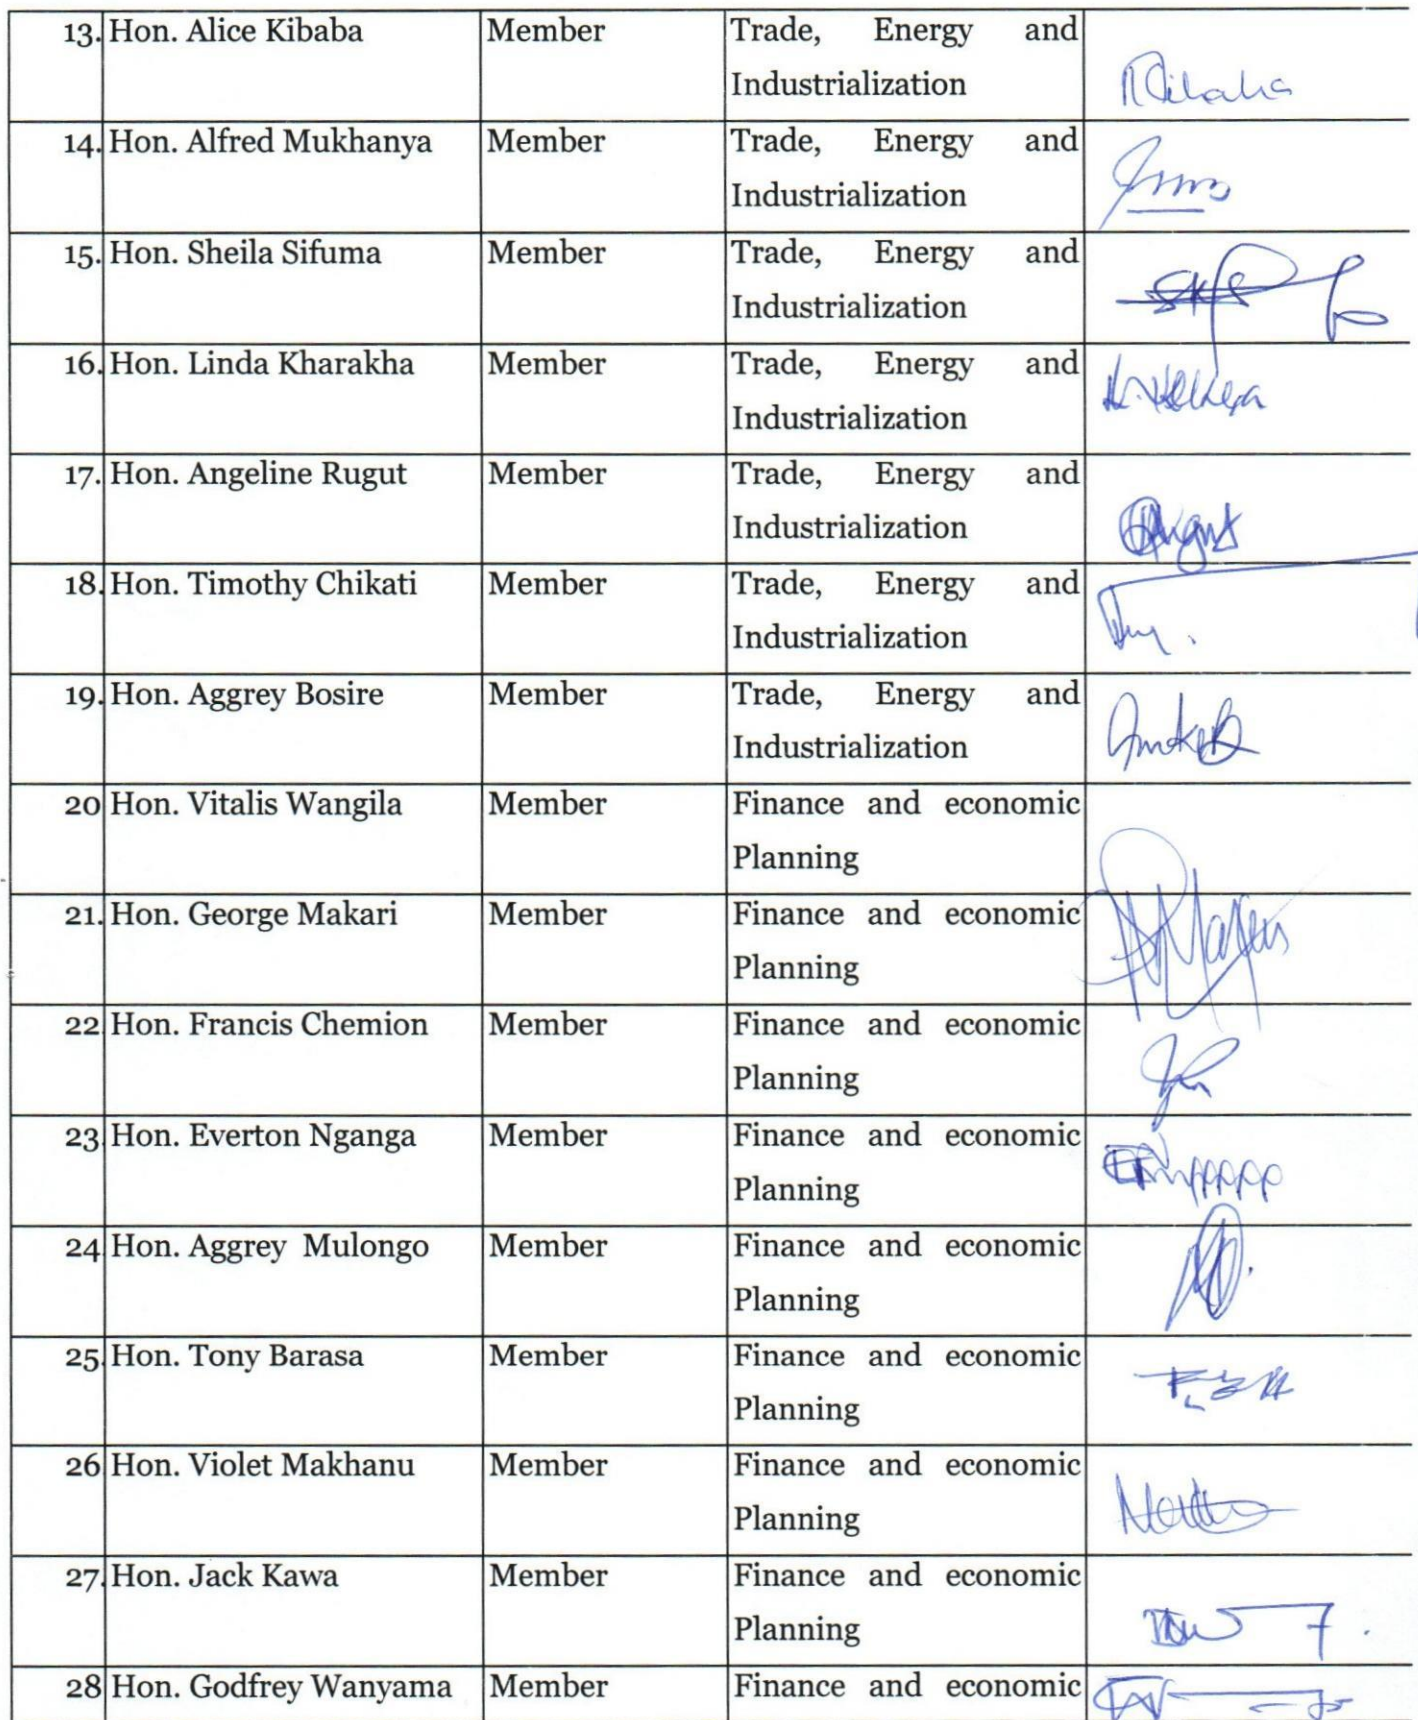 13. Hon. Alice Kibaba Member Trade, Energy and
Industrialization
14. Hon. Alfred Mukhanya Member Trade, Energy and
Industrialization
15. Hon. Sheila Sifuma Member Trade, Energy and
Industrialization
16. Hon. Linda Kharakha Member Trade, Energy and
Industrialization
17. Hon. Angeline Rugut Member Trade, Energy and
Industrialization
18. Hon. Timothy Chikati Member Trade, Energy and
Industrialization
19. Hon. Aggrey Bosire Member Trade, Energy and
Industrialization
20 Hon. Vitalis Wangila Member Finance and economic
Planning
21. Hon. George Makari Member Finance and economic
Planning
22 Hon. Francis Chemion Member Finance and economic
Planning
23 Hon. Everton Nganga Member Finance and economic
Planning
24 Hon. Aggrey Mulongo Member Finance and economic
Planning
25. Hon. Tony Barasa Member Finance and economic
Planning
26 Hon. Violet Makhanu Member Finance and economic
Planning
27. Hon. Jack Kawa Member Finance and economic
Planning
28 Hon. Godfrey Wanyama Member Finance and economic